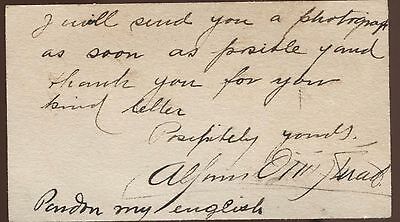 I will send you a photograph
as soon as posible yand
thank you for you
kind letter
Positively yours.
Pardon my english